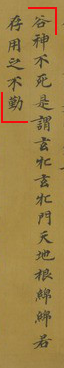 谷神不死是謂玄牝玄牝門天地根綿綿若
存用之不勤